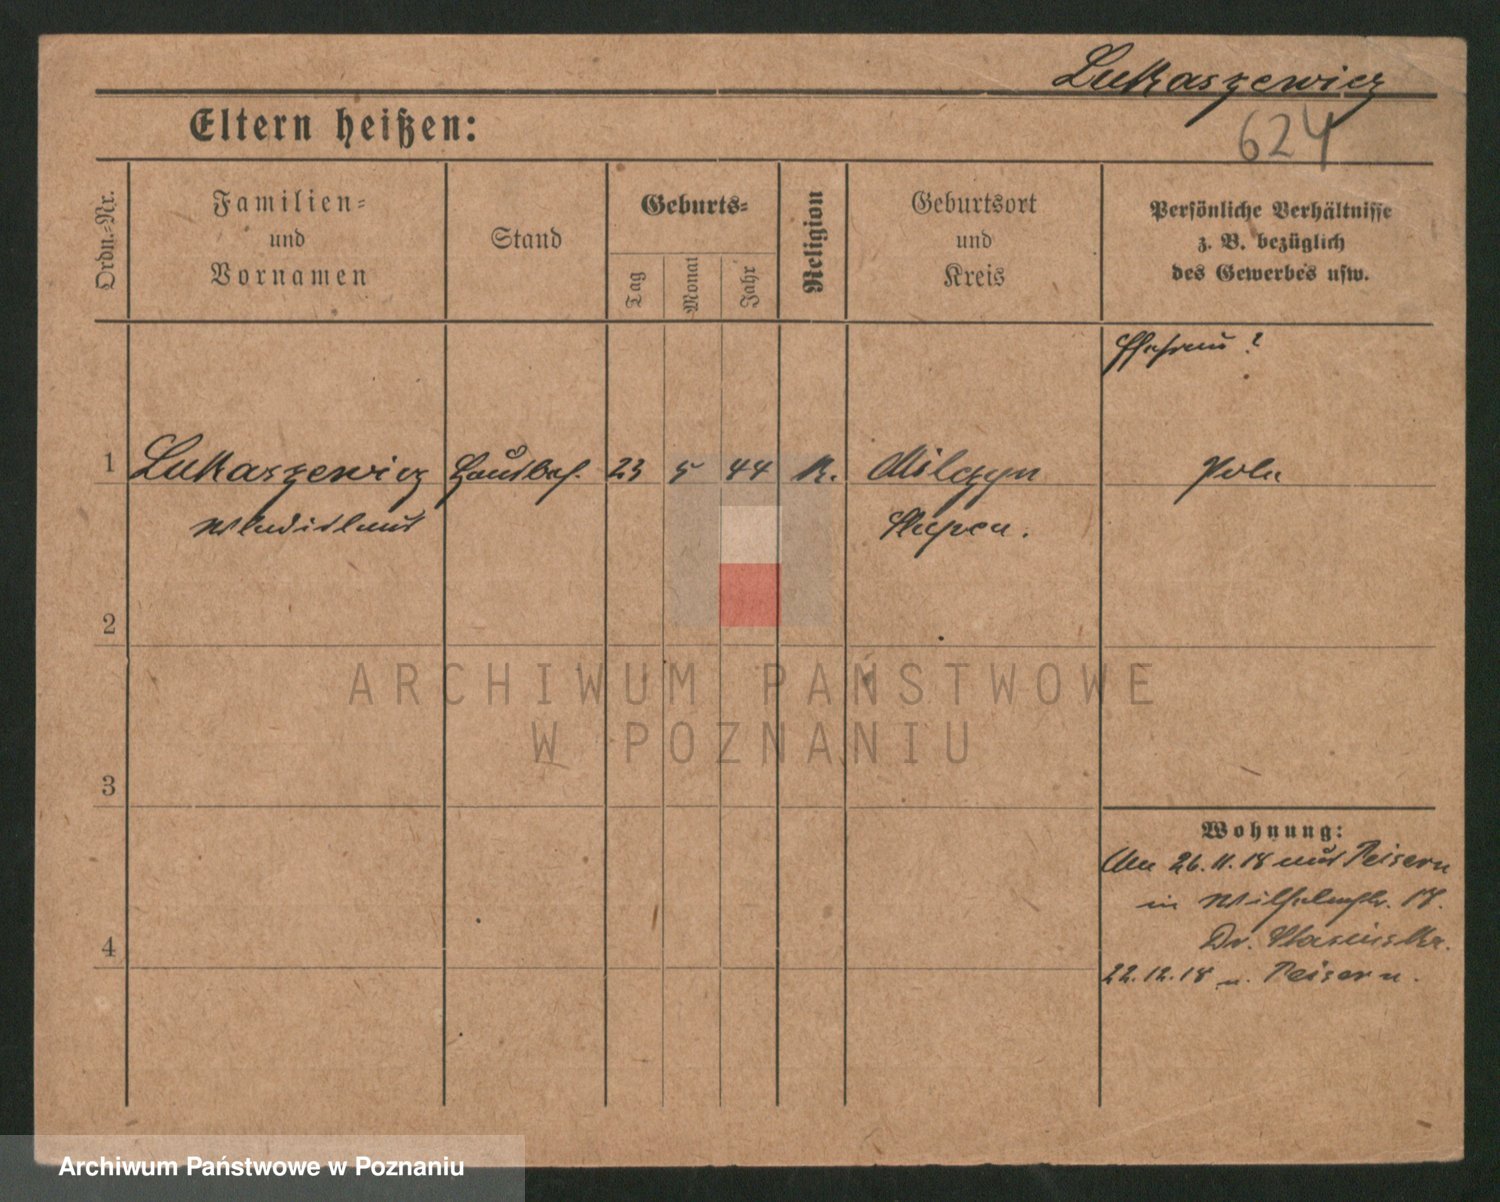 Lukaszewicz
624
Eltern heißen:
Ordn.-Nr.
Familien-
und
Vornamen
Stand
Geburts-
Tag
Monat
Jahr
Religion
Geburtsort
und
Kreis
Persönliche Verhältnisse
z. B. bezüglich
des Gewerbes usw.
Ehefrau ?
1 Lukaszewicz Hausbes. 23 5 44 K. Pole
Wladislaus
2
3
4
Wohnung:
Am 26.11.18 aus Peisern
in Wilhelmstr. 17.
Dr.
22.12.18 n. Peisern.
ARCHIWUM PAŃSTWOWE
W POZNANIU
Archiwum Państwowe w Poznaniu